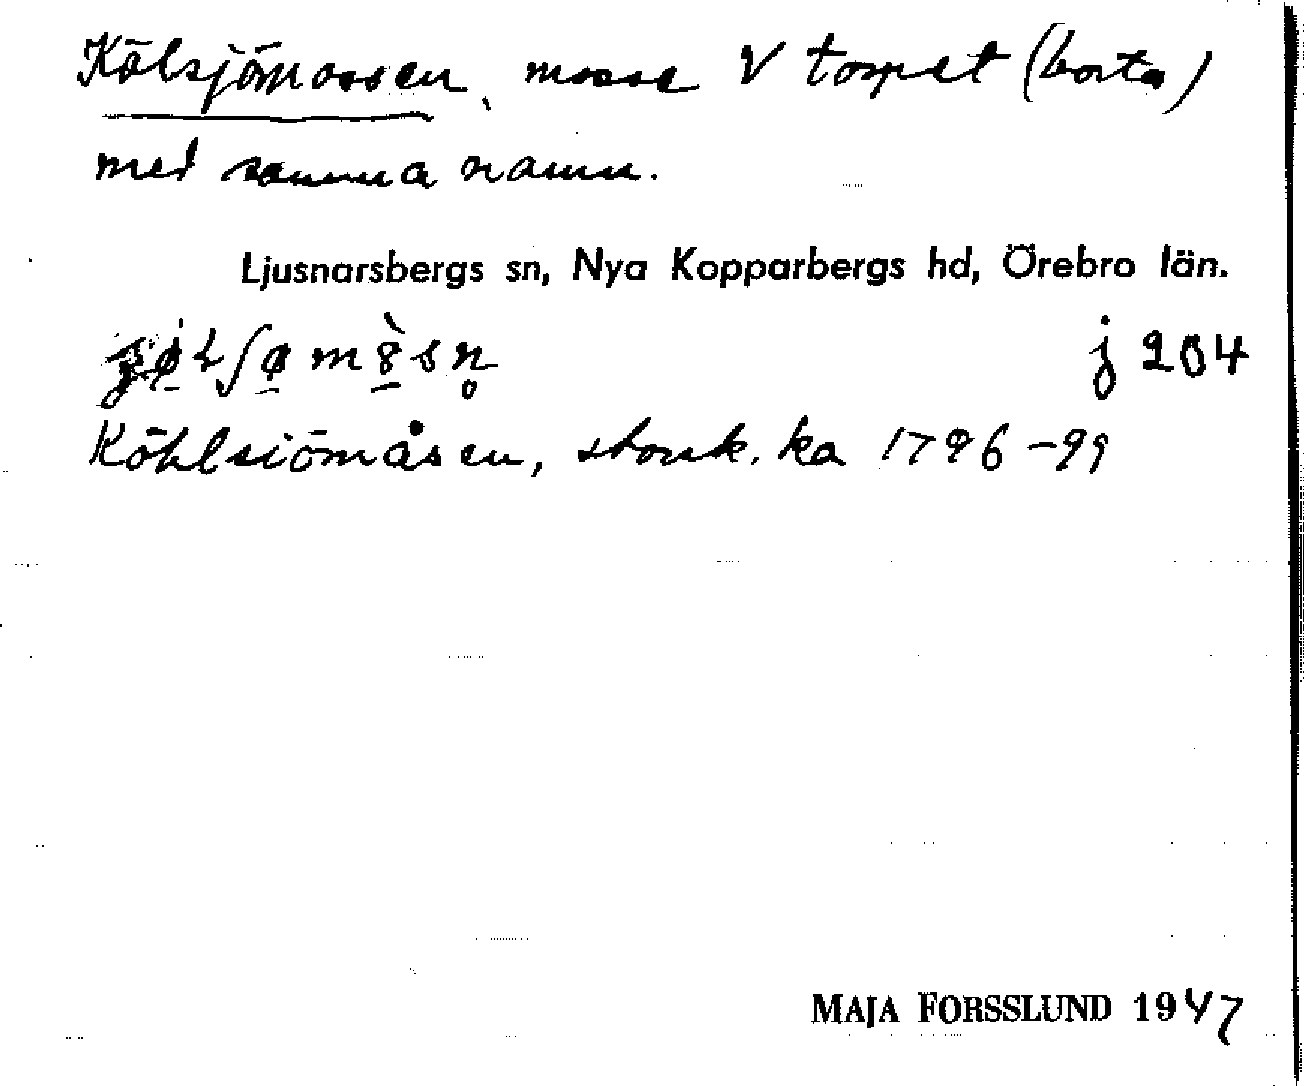 Kölsjömossen, mosse V torpet (borta)
med samma namn.
Ljusnarsbergs sn, Nya Kopparbergs hd, Örebro län.
j 204
Köhlsiömåsen, storsk. ka 1796-99
MAJA FORSSLUND 1947